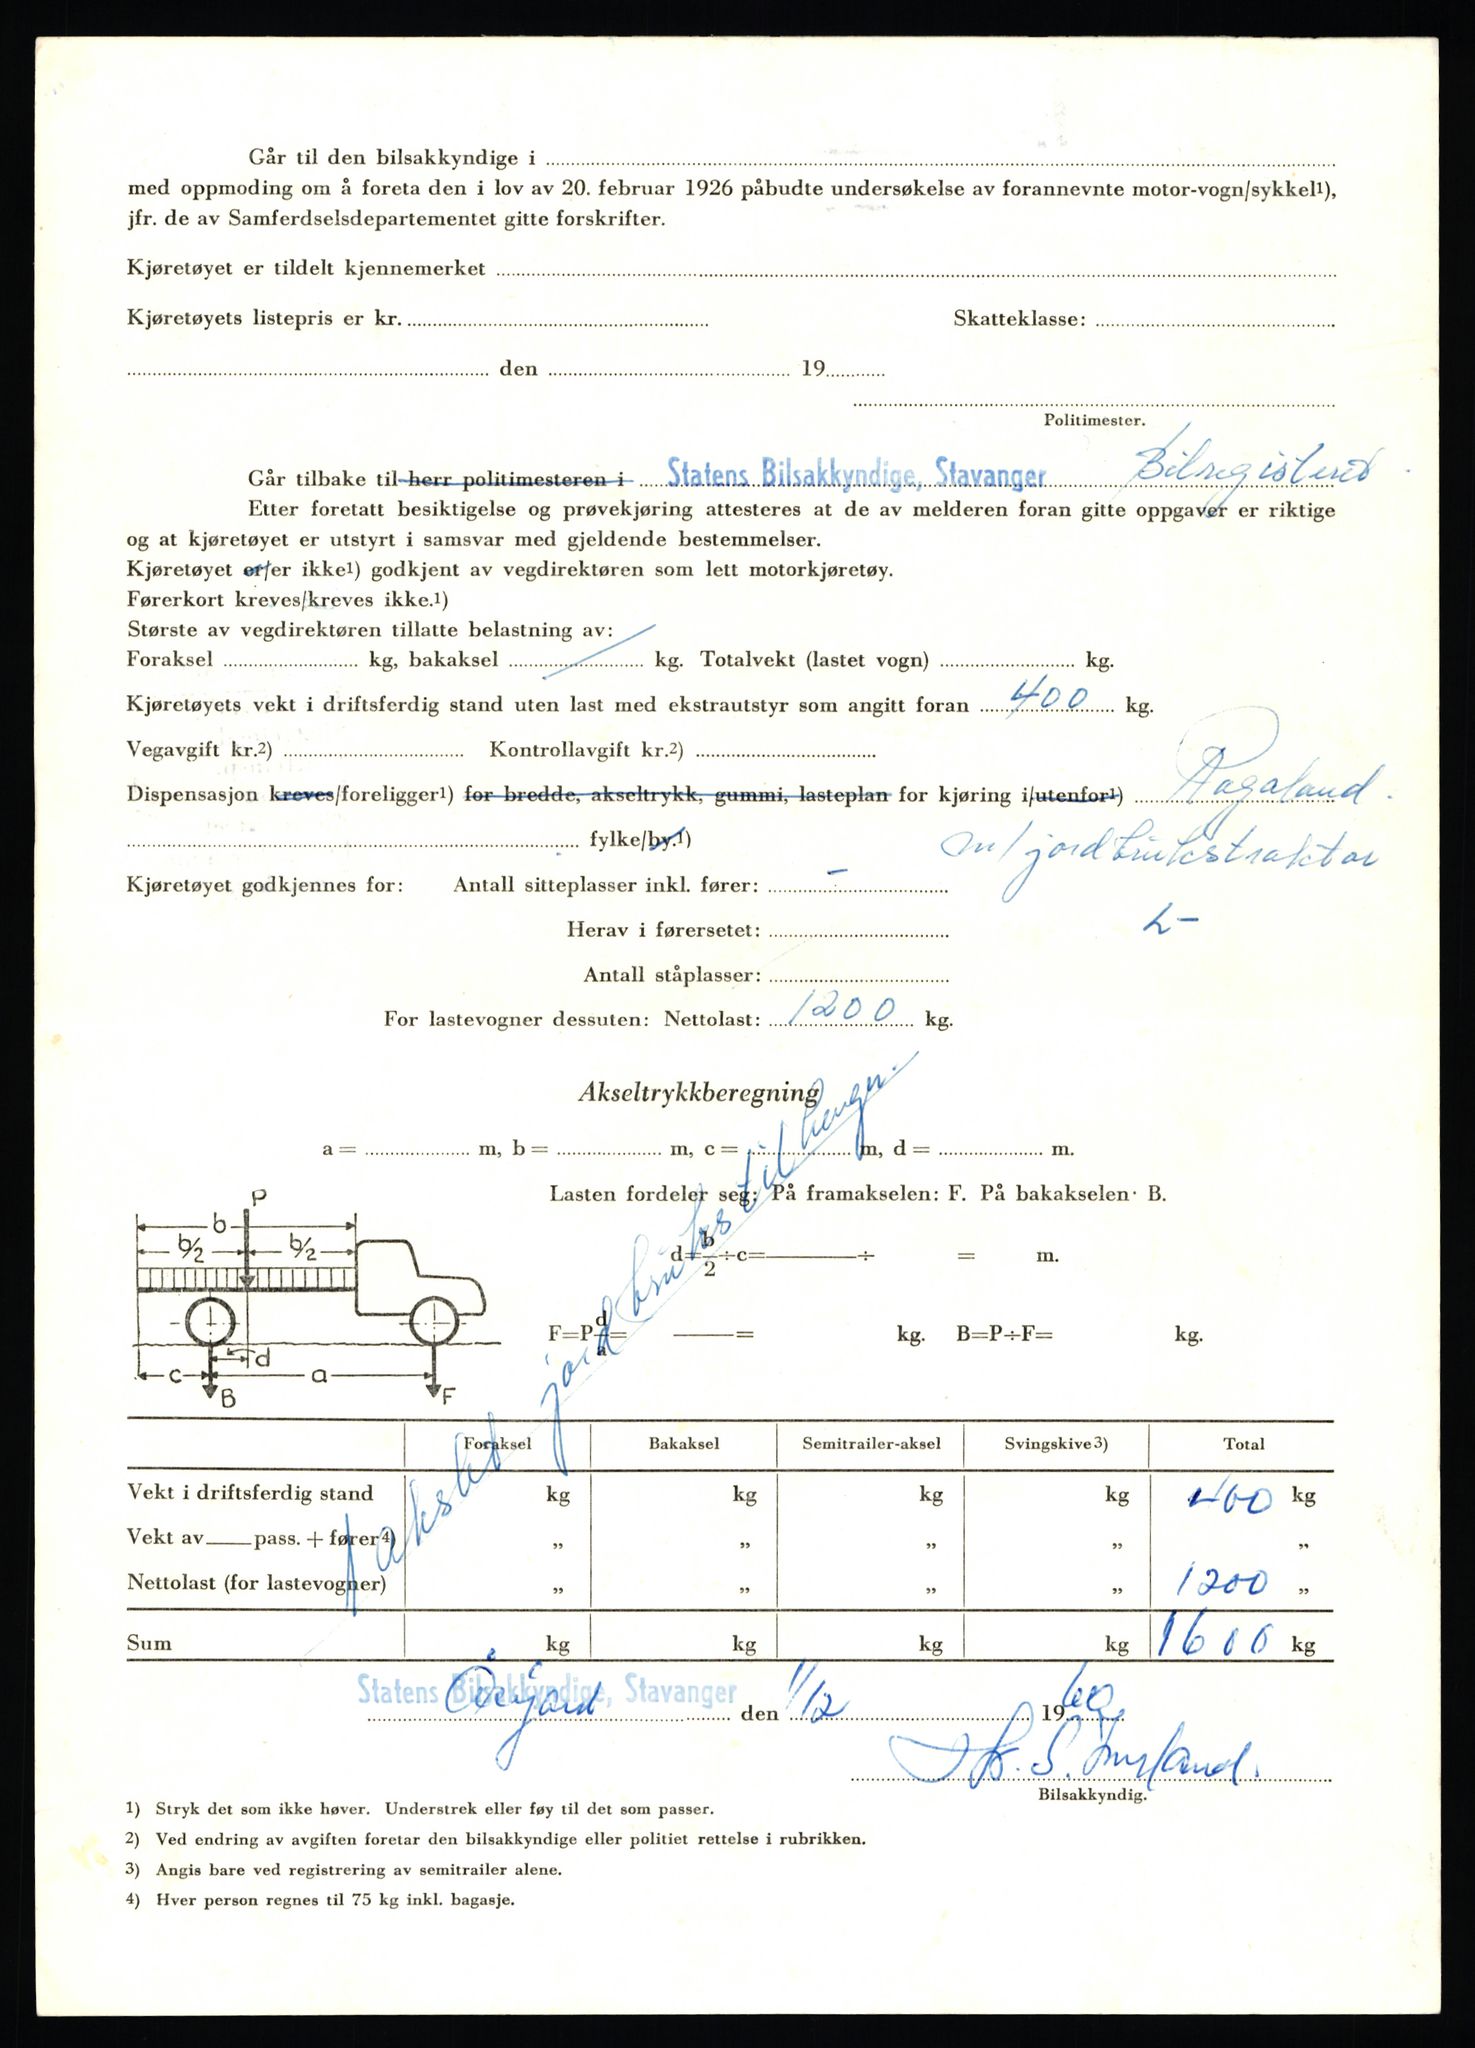 Går til den bilsakkyndige i
med oppmoding om å foreta den i lov av 20. februar 1926 påbudte undersøkelse av forannevnte motor-vogn/sykkel1),
jfr. de av Samferdselsdepartementet gitte forskrifter.
Kjøretøyet er tildelt kjennemerket
Kjøretøyets listepris er kr. Skatteklasse:
den 19
Politimester.
Går tilbake til herr politimesteren i Statens Bilsakkyndige, Stavanger Bilregisteret
Etter foretatt besiktigelse og prøvekjøring attesteres at de av melderen foran gitte oppgaver er riktige
og at kjøretøyet er utstyrt i samsvar med gjeldende bestemmelser.
Kjøretøyet er/er ikke1) godkjent av vegdirektøren som lett motorkjøretøy.
Førerkort kreves/kreves ikke.1)
Største av vegdirektøren tillatte belastning av:
Foraksel kg, bakaksel kg. Totalvekt (lastet vogn) kg.
Kjøretøyets vekt i driftsferdig stand uten last med ekstrautstyr som angitt foran 400 kg.
Vegavgift kr.2) Kontrollavgift kr.2)
Dispensasjon kreves/foreligger1) for bredde, akseltrykk, gummi, lasteplan for kjøring i/utenfor1) Rogaland.
fylke/by.1) m/jordbrukstraktor
Kjøretøyet godkjennes for: Antall sitteplasser inkl. fører: -
Herav i førersetet:
Antall ståplasser:
For lastevogner dessuten: Nettolast: 1200 kg.
Akseltrykkberegning
a = m, b = m, c = m, d = m.
Lasten fordeler seg: På framakselen: F. På bakakselen: B.
d=b/2÷c= ÷ = m.
F=P d/a= = kg. B=P÷F= kg.
P
b
b/2 b/2
c d a
B F
jordbrukstilhenger.
Foraksel Bakaksel Semitrailer-aksel Svingskive3) Total
Vekt i driftsferdig stand kg kg kg kg 400 kg
Vekt av pass. + fører4) „ „ „ „ „
Nettolast (for lastevogner) „ „ „ „ 1200 „
Sum kg kg kg kg 1600 kg
Statens Bilsakkyndige, Stavanger
den 1/12 1960
Bilsakkyndig.
1) Stryk det som ikke høver. Understrek eller føy til det som passer.
2) Ved endring av avgiften foretar den bilsakkyndige eller politiet rettelse i rubrikken.
3) Angis bare ved registrering av semitrailer alene.
4) Hver person regnes til 75 kg inkl. bagasje.